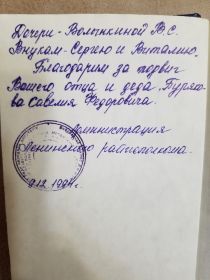 Дочери - Волынкиной В.С.
Внукам - Сергею и Виталию.
Благодарим за подвиг
Вашего отца и деда Буряко-
ва Савелия Федоровича.
Администрация
Ленинского райисполкома.